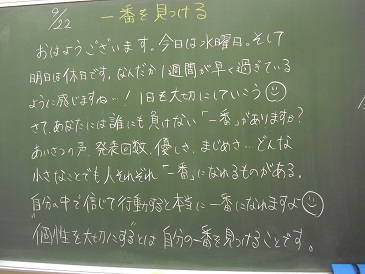 9/22 一番を見つける
おはようございます。今日は水曜日。そして
明日は休日です。なんだか1週間が早く過ぎている
ように感じますね…！1日を大切にしていこう
さて、あなたには誰にも負けない「一番」がありますか？
あいさつの声、発表回数、優しさ、まじめさ…どんな
小さなことでも人それぞれ「一番」になれるものがある。
自分の中で信じて行動すると本当に一番になれますよ
"個性を大切にする"とは自分の一番を見つけることです。